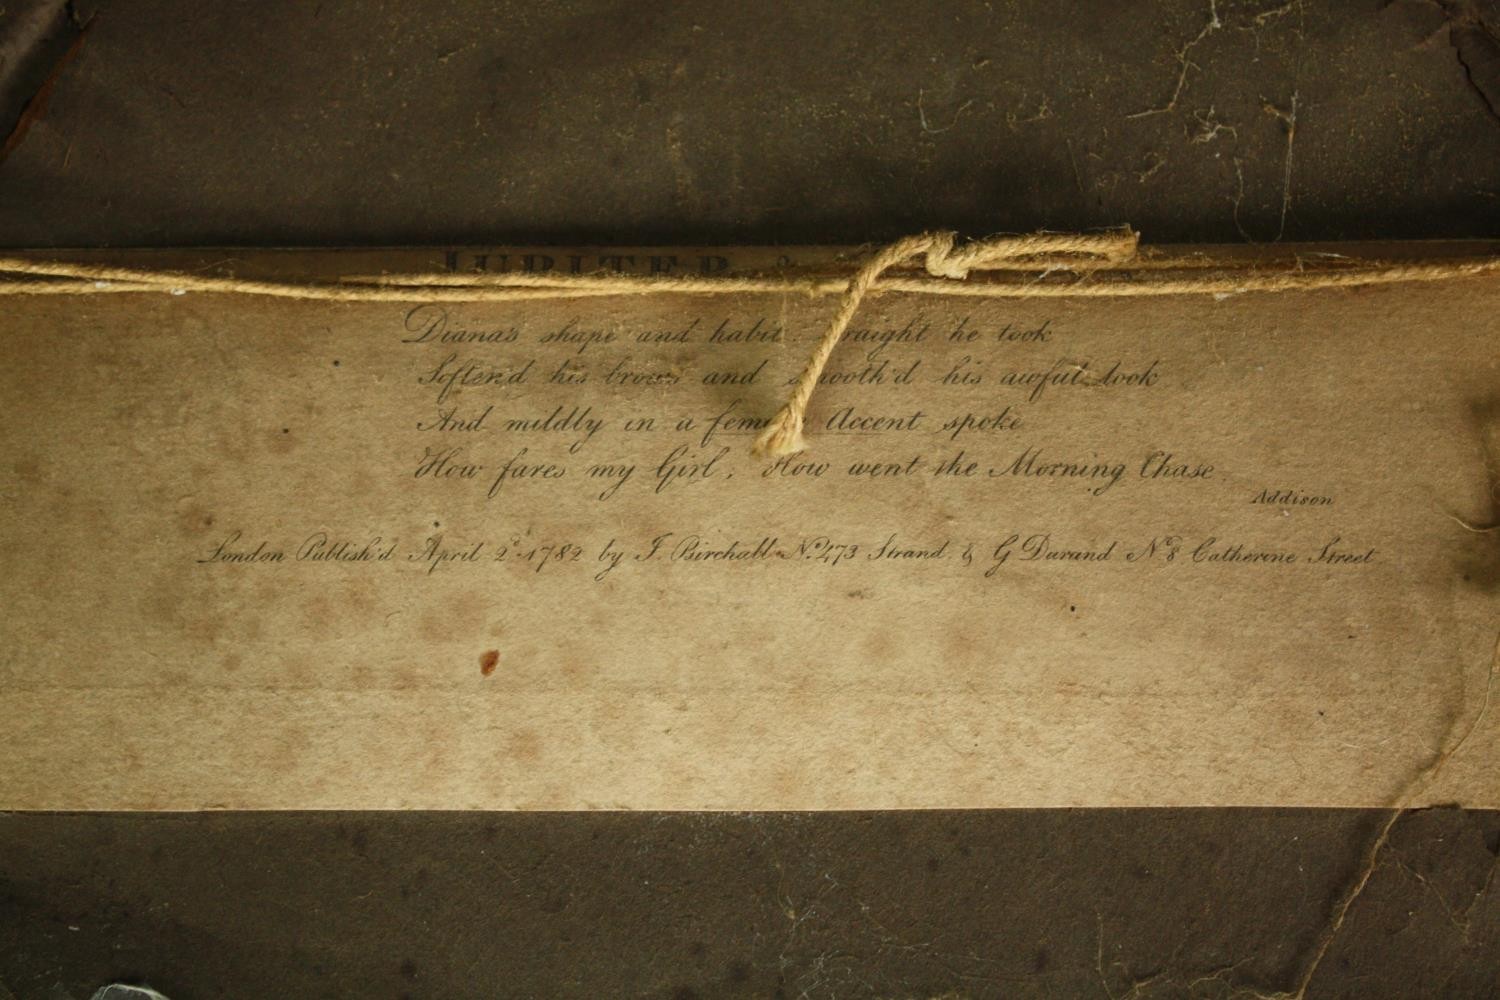 JUPITER &
Diana's shape and habit he took
Soften'd his brows and his awful look
And mildly in a Accent spoke
How fares my Girl, How went the Morning Chase.
Addison
London Publish'd April 2d 1782 by J. Birchall No. 473 Strand & G Durand No 8 Catherine Street